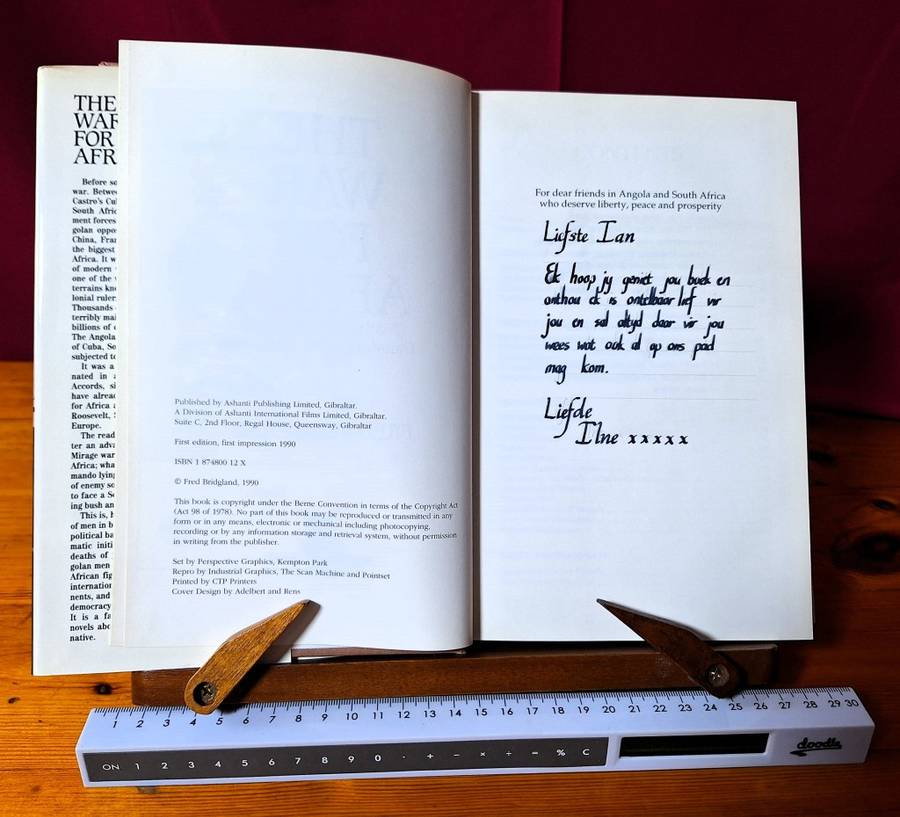 THE
WAR
FOR
AFR
Before
war. Betwe
Castro's Cu
South Afric
ment forces
golan oppo
China, Fran
the biggest
Africa. It w
of modern
one of the
terrains kn
lonial ruler
Thousands
terribly mai
billions of
The Angola
of Cuba, So
subjected to
It was a
nated in
Accords, si
have alread
for Africa a
Roosevelt,
Europe.
The read
ter an adva
Mirage war
Africa; wha
mando lying
of enemy so
to face a So
ing bush an
This is,
of men in b
political ba
matic initi
deaths of
golan men
African fig
internation
nents, and
democracy
It is a fa
novels abo
native.
Published by Ashanti Publishing Limited, Gibraltar.
A Division of Ashanti International Films Limited, Gibraltar.
Suite C, 2nd Floor, Regal House, Queensway, Gibraltar
First edition, first impression 1990
ISBN 1 874800 12 X
© Fred Bridgland, 1990
This book is copyright under the Berne Convention in terms of the Copyright Act
(Act 98 of 1978). No part of this book may be reproduced or transmitted in any
form or in any means, electronic or mechanical including photocopying,
recording or by any information storage and retrieval system, without permission
in writing from the publisher.
Set by Perspective Graphics, Kempton Park
Repro by Industrial Graphics, The Scan Machine and Pointset
Printed by CTP Printers
Cover Design by Adelbert and Rens
For dear friends in Angola and South Africa
who deserve liberty, peace and prosperity
Liefste Ian
Ek hoop jy geniet jou boek en
onthou ek is ontelbaar lief vir
jou en sal altyd daar vir jou
wees wat ook al op ons pad
mag kom.
Liefde
Ilne x x x x x
1 2 3 4 5 6 7 8 9 10 11 12 13 14 15 16 17 18 19 20 21 22 23 24 25 26 27 28 29 30
ON 1 2 3 4 5 6 7 8 9 0 · + − × ÷ = % C
doodle